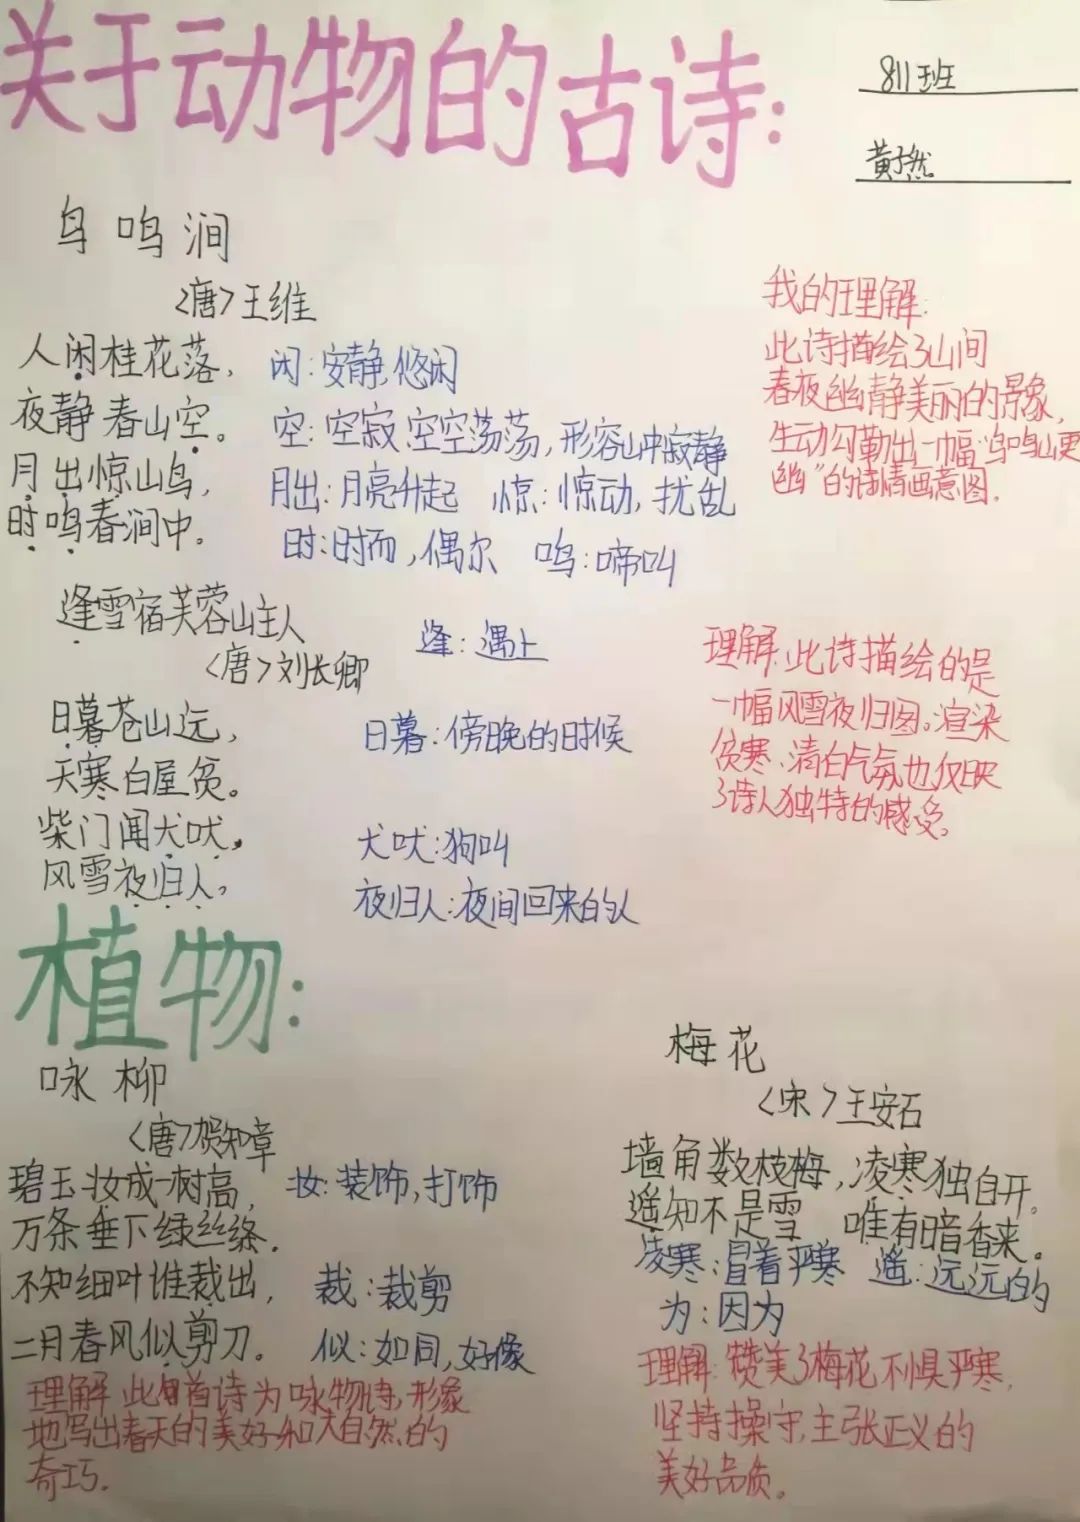 关于动物的古诗:
811班
黄子然
鸟鸣涧
<唐>王维
人闲桂花落,
夜静春山空。
月出惊山鸟,
时鸣春涧中。
闲:安静,悠闲
空:空寂、空空荡荡,形容山中寂静
月出:月亮升起 惊:惊动,扰乱
时:时而,偶尔 鸣:啼叫
我的理解:
此诗描绘了山间
春夜幽静美丽的景象,
生动勾勒出一幅“鸟鸣山更
幽”的诗情画意图.
逢雪宿芙蓉山主人
<唐>刘长卿
逢:遇上
日暮苍山远,
天寒白屋贫。
柴门闻犬吠,
风雪夜归人。
日暮:傍晚的时候
犬吠:狗叫
夜归人:夜间回来的人
理解:此诗描绘的是
一幅风雪夜归图。渲染
贫寒、清白气氛也仅映
了诗人独特的感受。
植物:
咏柳
<唐>贺知章
碧玉妆成一树高,
万条垂下绿丝绦.
不知细叶谁裁出,
二月春风似剪刀。
妆:装饰,打饰
裁:裁剪
似:如同,好像
理解 此首诗为咏物诗,形象
地写出春天的美好和大自然的
奇巧.
梅花
<宋>王安石
墙角数枝梅,凌寒独自开。
遥知不是雪 唯有暗香来。
凌寒:冒着严寒 遥:远远的
为:因为
理解:赞美了梅花不惧严寒,
坚持操守,主张正义的
美好品质。